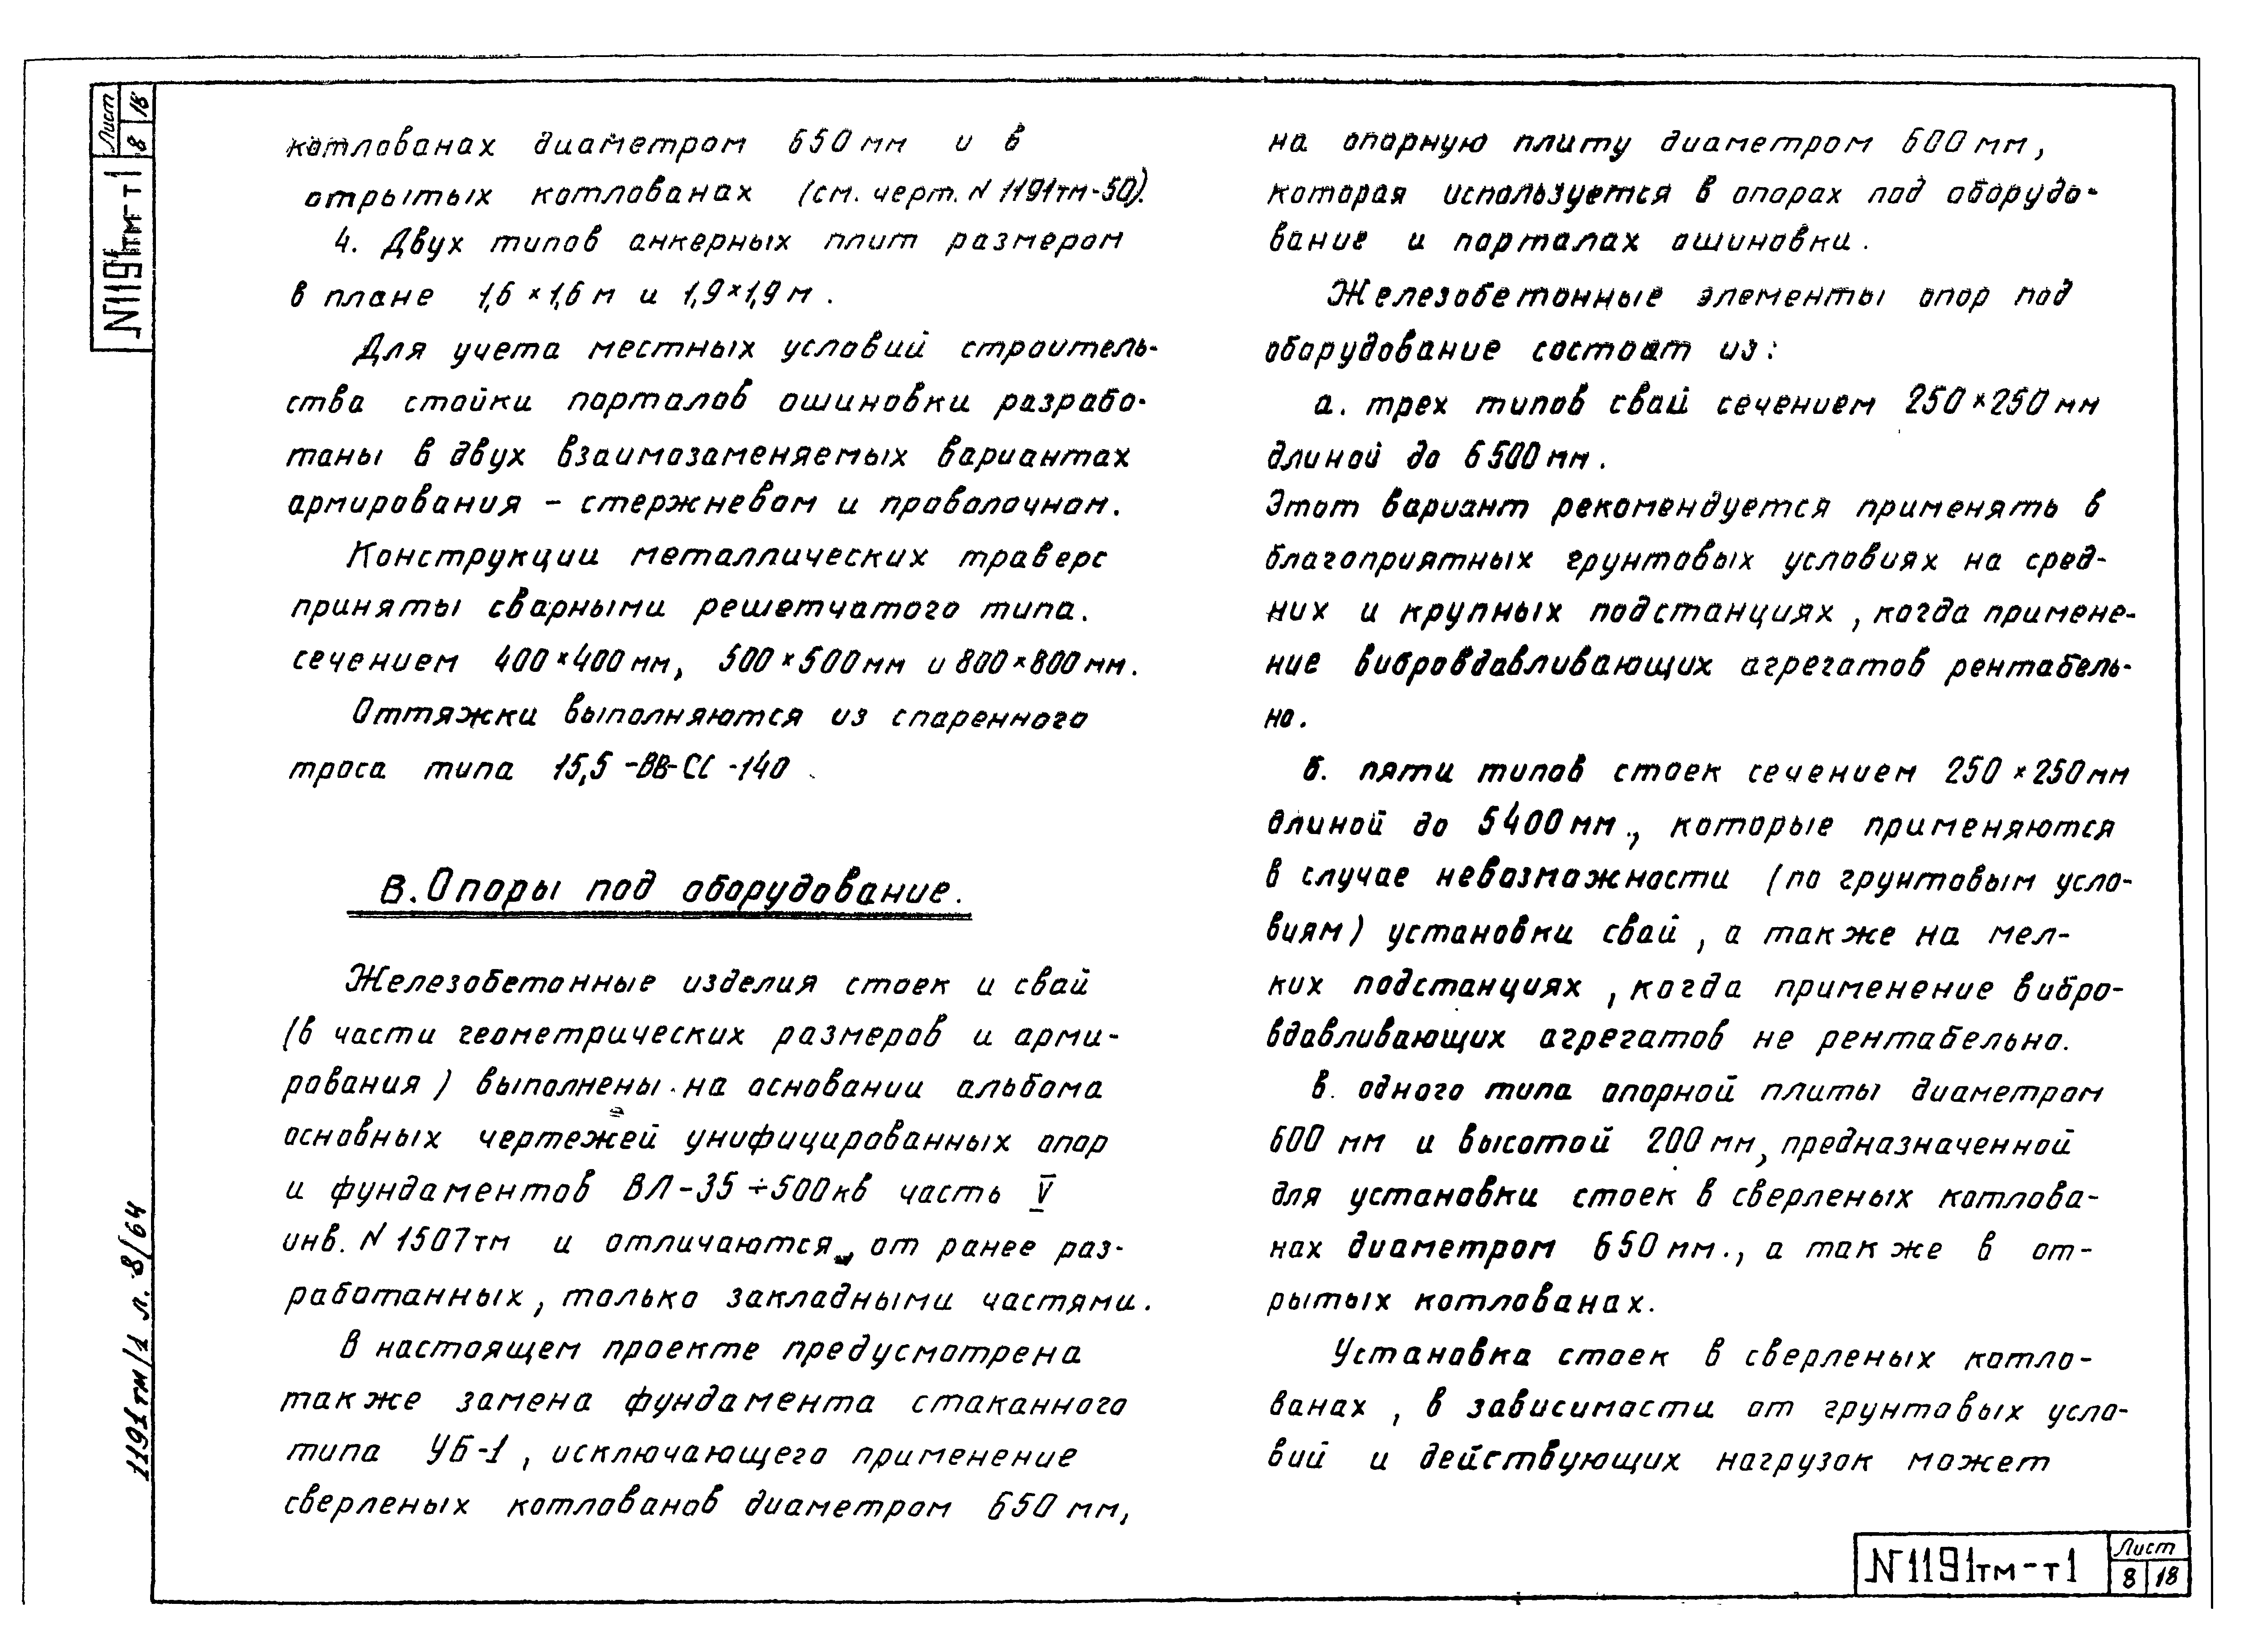 Лист
8 18
N1191тм-т1
котлованах диаметром 650 мм и в
отрытых котлованах (см. черт. N 1191тм-50).
4. Двух типов анкерных плит размером
в плане 1,6 × 1,6 м и 1,9 × 1,9 м.
Для учета местных условий строитель-
ства стойки порталов ошиновки разрабо-
таны в двух взаимозаменяемых вариантах
армирования - стержневом и проволочном.
Конструкции металлических траверс
приняты сварными решетчатого типа.
сечением 400 × 400 мм, 500 × 500 мм и 800 × 800 мм.
Оттяжки выполняются из спаренного
троса типа 15,5 -ВВ-СС -140
В. Опоры под оборудование.
Железобетонные изделия стоек и свай
(в части геометрических размеров и арми-
рования) выполнены на основании альбома
основных чертежей унифицированных опор
и фундаментов ВЛ-35 ÷ 500 кв часть V
инв. N 1507тм и отличаются, от ранее раз-
работанных, только закладными частями.
В настоящем проекте предусмотрена
также замена фундамента стаканного
типа УБ-1, исключающего применение
сверленых котлованов диаметром 650 мм,
на опорную плиту диаметром 600 мм,
которая используется в опорах под оборудо-
вание и порталах ошиновки.
Железобетонные элементы опор под
оборудование состоят из:
а. трех типов свай сечением 250 × 250 мм
длиной до 6500 мм.
Этот вариант рекомендуется применять в
благоприятных грунтовых условиях на сред-
них и крупных подстанциях, когда примене-
ние вибровдавливающих агрегатов рентабель-
но.
б. пяти типов стоек сечением 250 × 250 мм
длиной до 5400 мм., которые применяются
в случае невозможности (по грунтовым усло-
виям) установки свай, а также на мел-
ких подстанциях, когда применение вибро-
вдавливающих агрегатов не рентабельно.
в. одного типа опорной плиты диаметром
600 мм и высотой 200 мм, предназначенной
для установки стоек в сверленых котлова-
нах диаметром 650 мм., а также в от-
рытых котлованах.
Установка стоек в сверленых котло-
ванах, в зависимости от грунтовых усло-
вий и действующих нагрузок может
1191тм/1 л. 8/64
N1191тм-т1
Лист
8 18